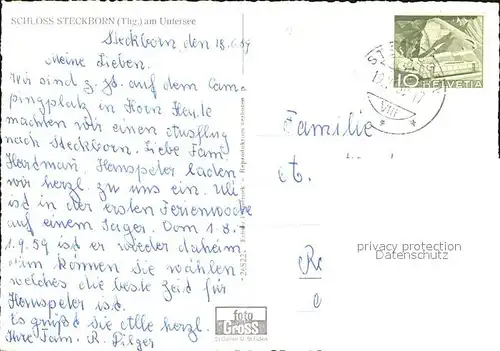 SCHLOSS STECKBORN (Thg.) am Untersee
Steckborn, den 18.6.59
Meine Lieben.
Wir sind z. Zt. auf dem Cam-
pingplatz in Horn Heute
machten wir einen Ausflug
nach Steckborn. Liebe Fam.
Hardman, Hanspeter laden
wir herzl. zu uns ein. Uli
ist in der ersten Ferienwoche
auf einem Lager. Vom 1.8.
1.9.59 ist er wieder daheim.
Nun können Sie wählen
welches die beste Zeit für
Hanspeter ist.
Es grüßt Sie Alle herzl.
Ihre Fam. R. Pilger
foto
Gross
St. Gallen
Reproduktion verboten
10
HELVETIA
VIII
Familie
privacy protection
Datenschutz